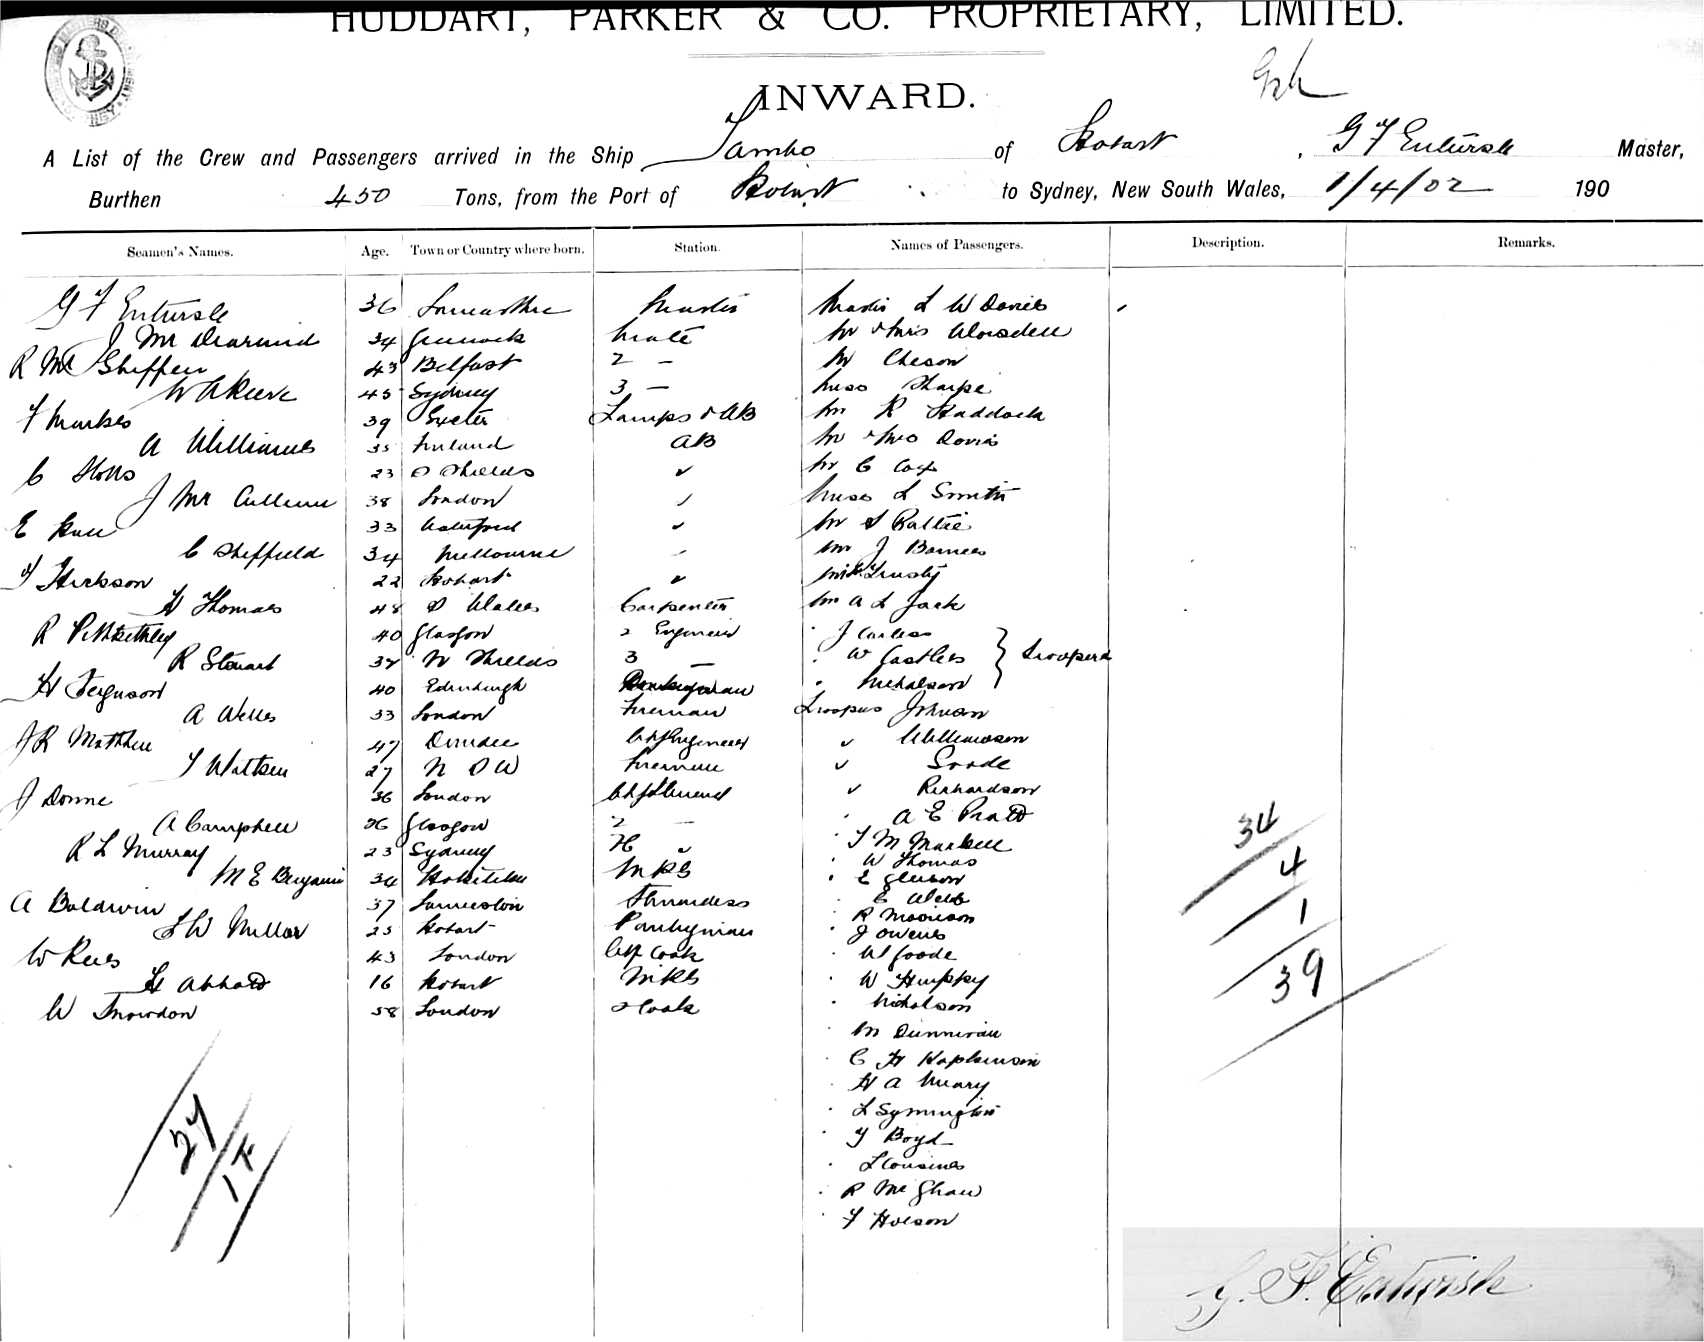 HUDDART, PARKER & CO. PROPRIETARY, LIMITED.
INWARD.
A List of the Crew and Passengers arrived in the Ship Tambo of Hobart, G F Entwisle Master,
Burthen 450 Tons, from the Port of Hobart to Sydney, New South Wales, 1/4/02 190
Seamen's Names. Age. Town or Country where born. Station. Names of Passengers. Description. Remarks.
G F Entwisle 36 Lancashire Master Master L W Davies
J Mc Diarmid 34 Greenock Mate Mr & Mrs Worsdell
R Mc 43 Belfast 2 - Mr Cheson
W A Reeve 45 Sydney 3 - Miss Sharpe
F Markes 39 Exeter Lamps & AB Mr R Haddock
A Williams 35 Finland AB Mr & Mrs Davis
C 23 S Shields Mr C Cox
J Mc Cullum 38 London Miss L Smith
E 33 Waterford Mr S Rattie
C Sheffield 34 Melbourne Mr J Barnes
T Hickson 22 Hobart Trusty
H Thomas 48 S Wales Carpenter Mr A L Jack
R 40 Glasgow 2 Engineer J Carless
R Stewart 38 N Shields 3 - W Castles Troopers
H Ferguson 40 Edinburgh Nicholson
A Welles 33 London Fireman Troopers Johnson
J R Matthew 47 Dundee Chf Engineer Williamson
T Watken 27 N S W Fireman Goode
J Donne 36 London Chf Steward Richardson
A Campbell 26 Glasgow 2 - A E Pratt
R L Murray 23 Sydney T M
M E Benjamin 34 Hokitika W Thomas
A Baldwin 37 Launceston Stewardess E Gleeson
L W Millar 25 Hobart Pantryman E Webb
W Rees 43 London Chf Cook R Morrison
H Abbott 16 Hobart J Owens
W Snowdon 58 London 2 Cook W Goode
W Humpky
Nicholson
M Dunnivan
C H Hopkinson
H A Neary
L Symington
T Boyd
L Cousines
R McGhan
F Hobson
34
4
1
39
27
1 F
G. F. Entwisle